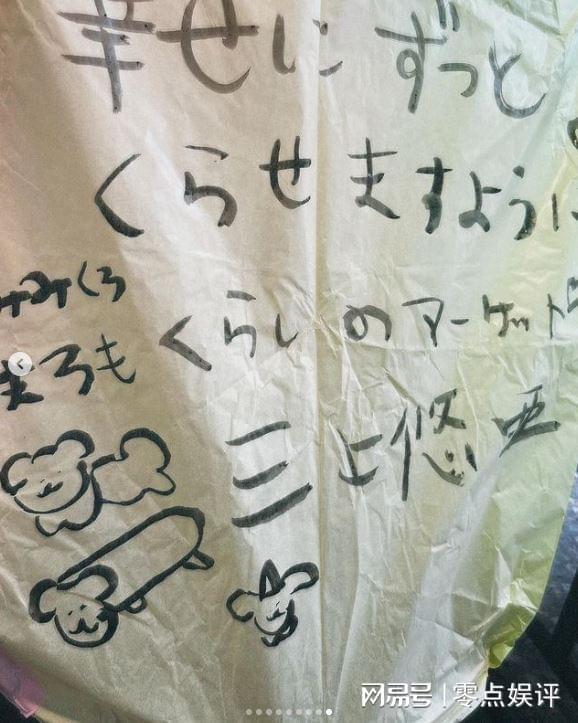 幸せにずっと
くらせますように
みみくろ
まろも
くらしのマーケット
三上悠亜
网易号 | 零点娱评